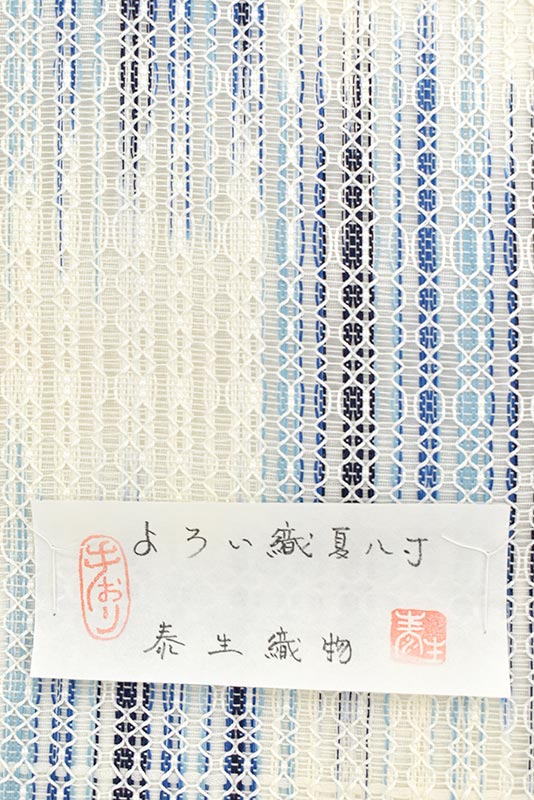 よろい織夏八寸
手おり
泰生織物
泰生